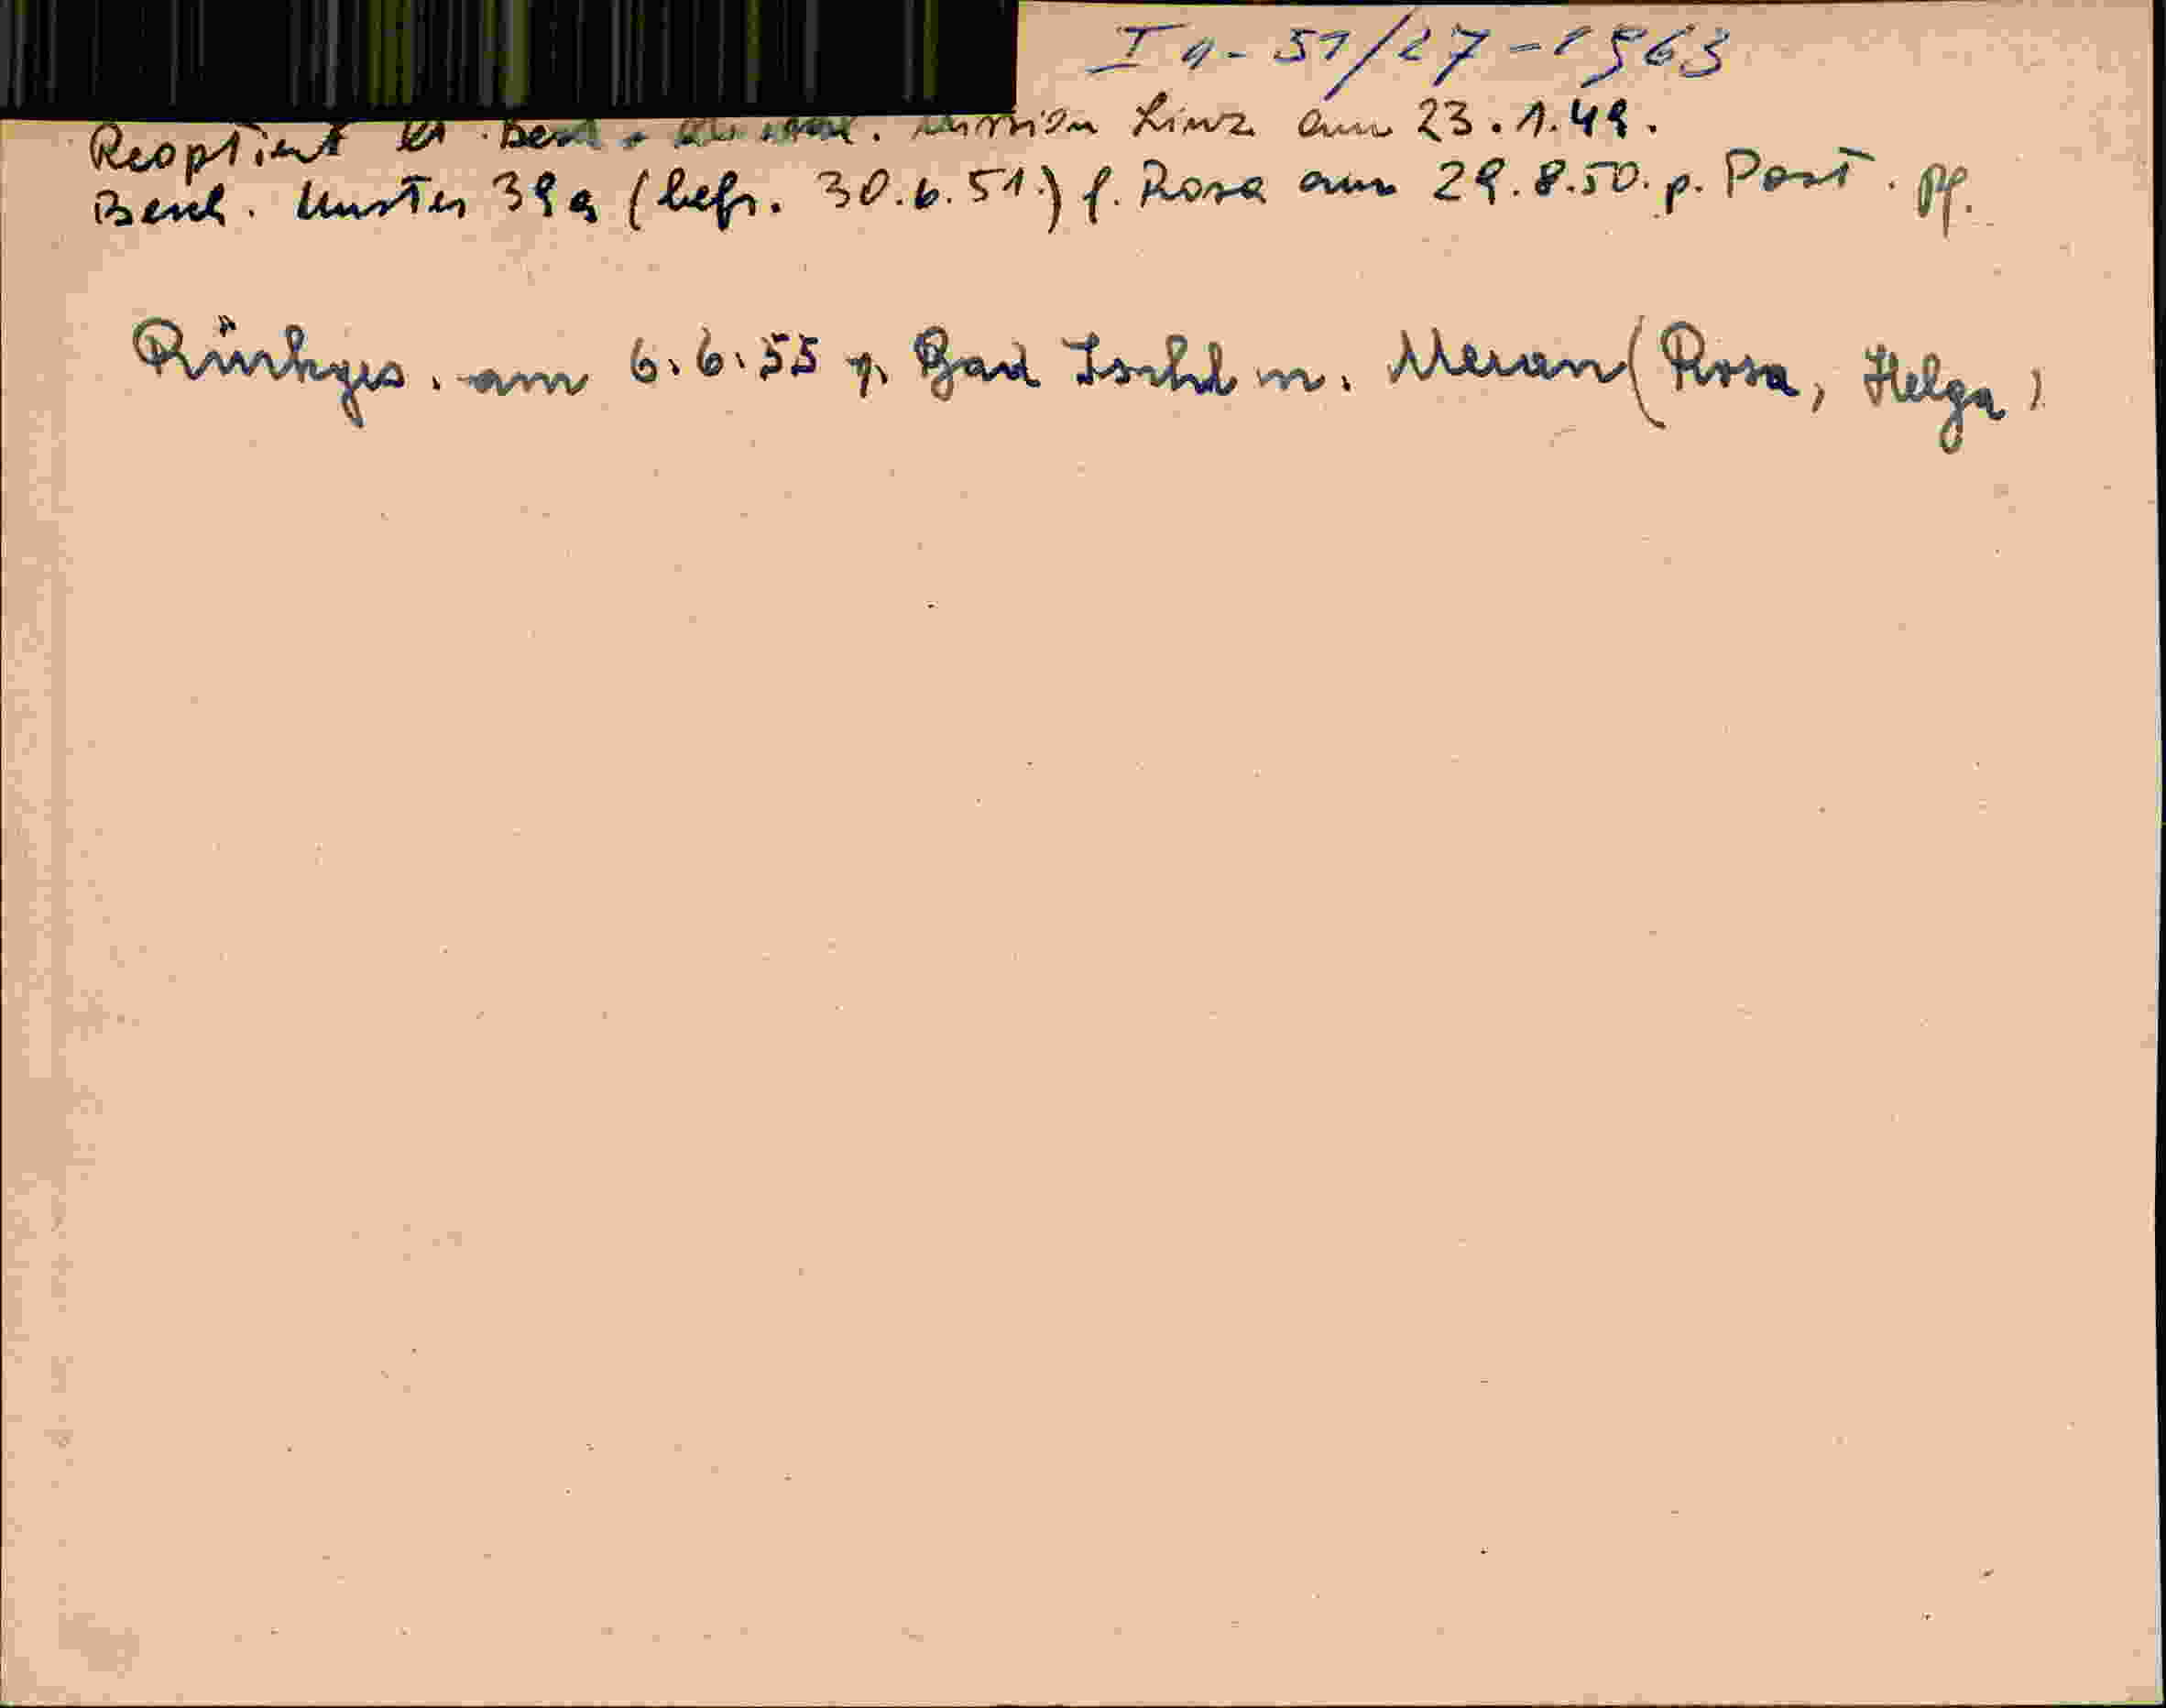 I a - 51/27-1963
Reoptiert lt. Besch. Mission Linz am 23.1.49.
Besch. Muster 39a (befr. 30.6.51.) f. Rosa am 29.8.50. p. Post. pf.
Rückges. am 6.6.55 v. Bad Ischl n. Meran (Rosa, Helga)